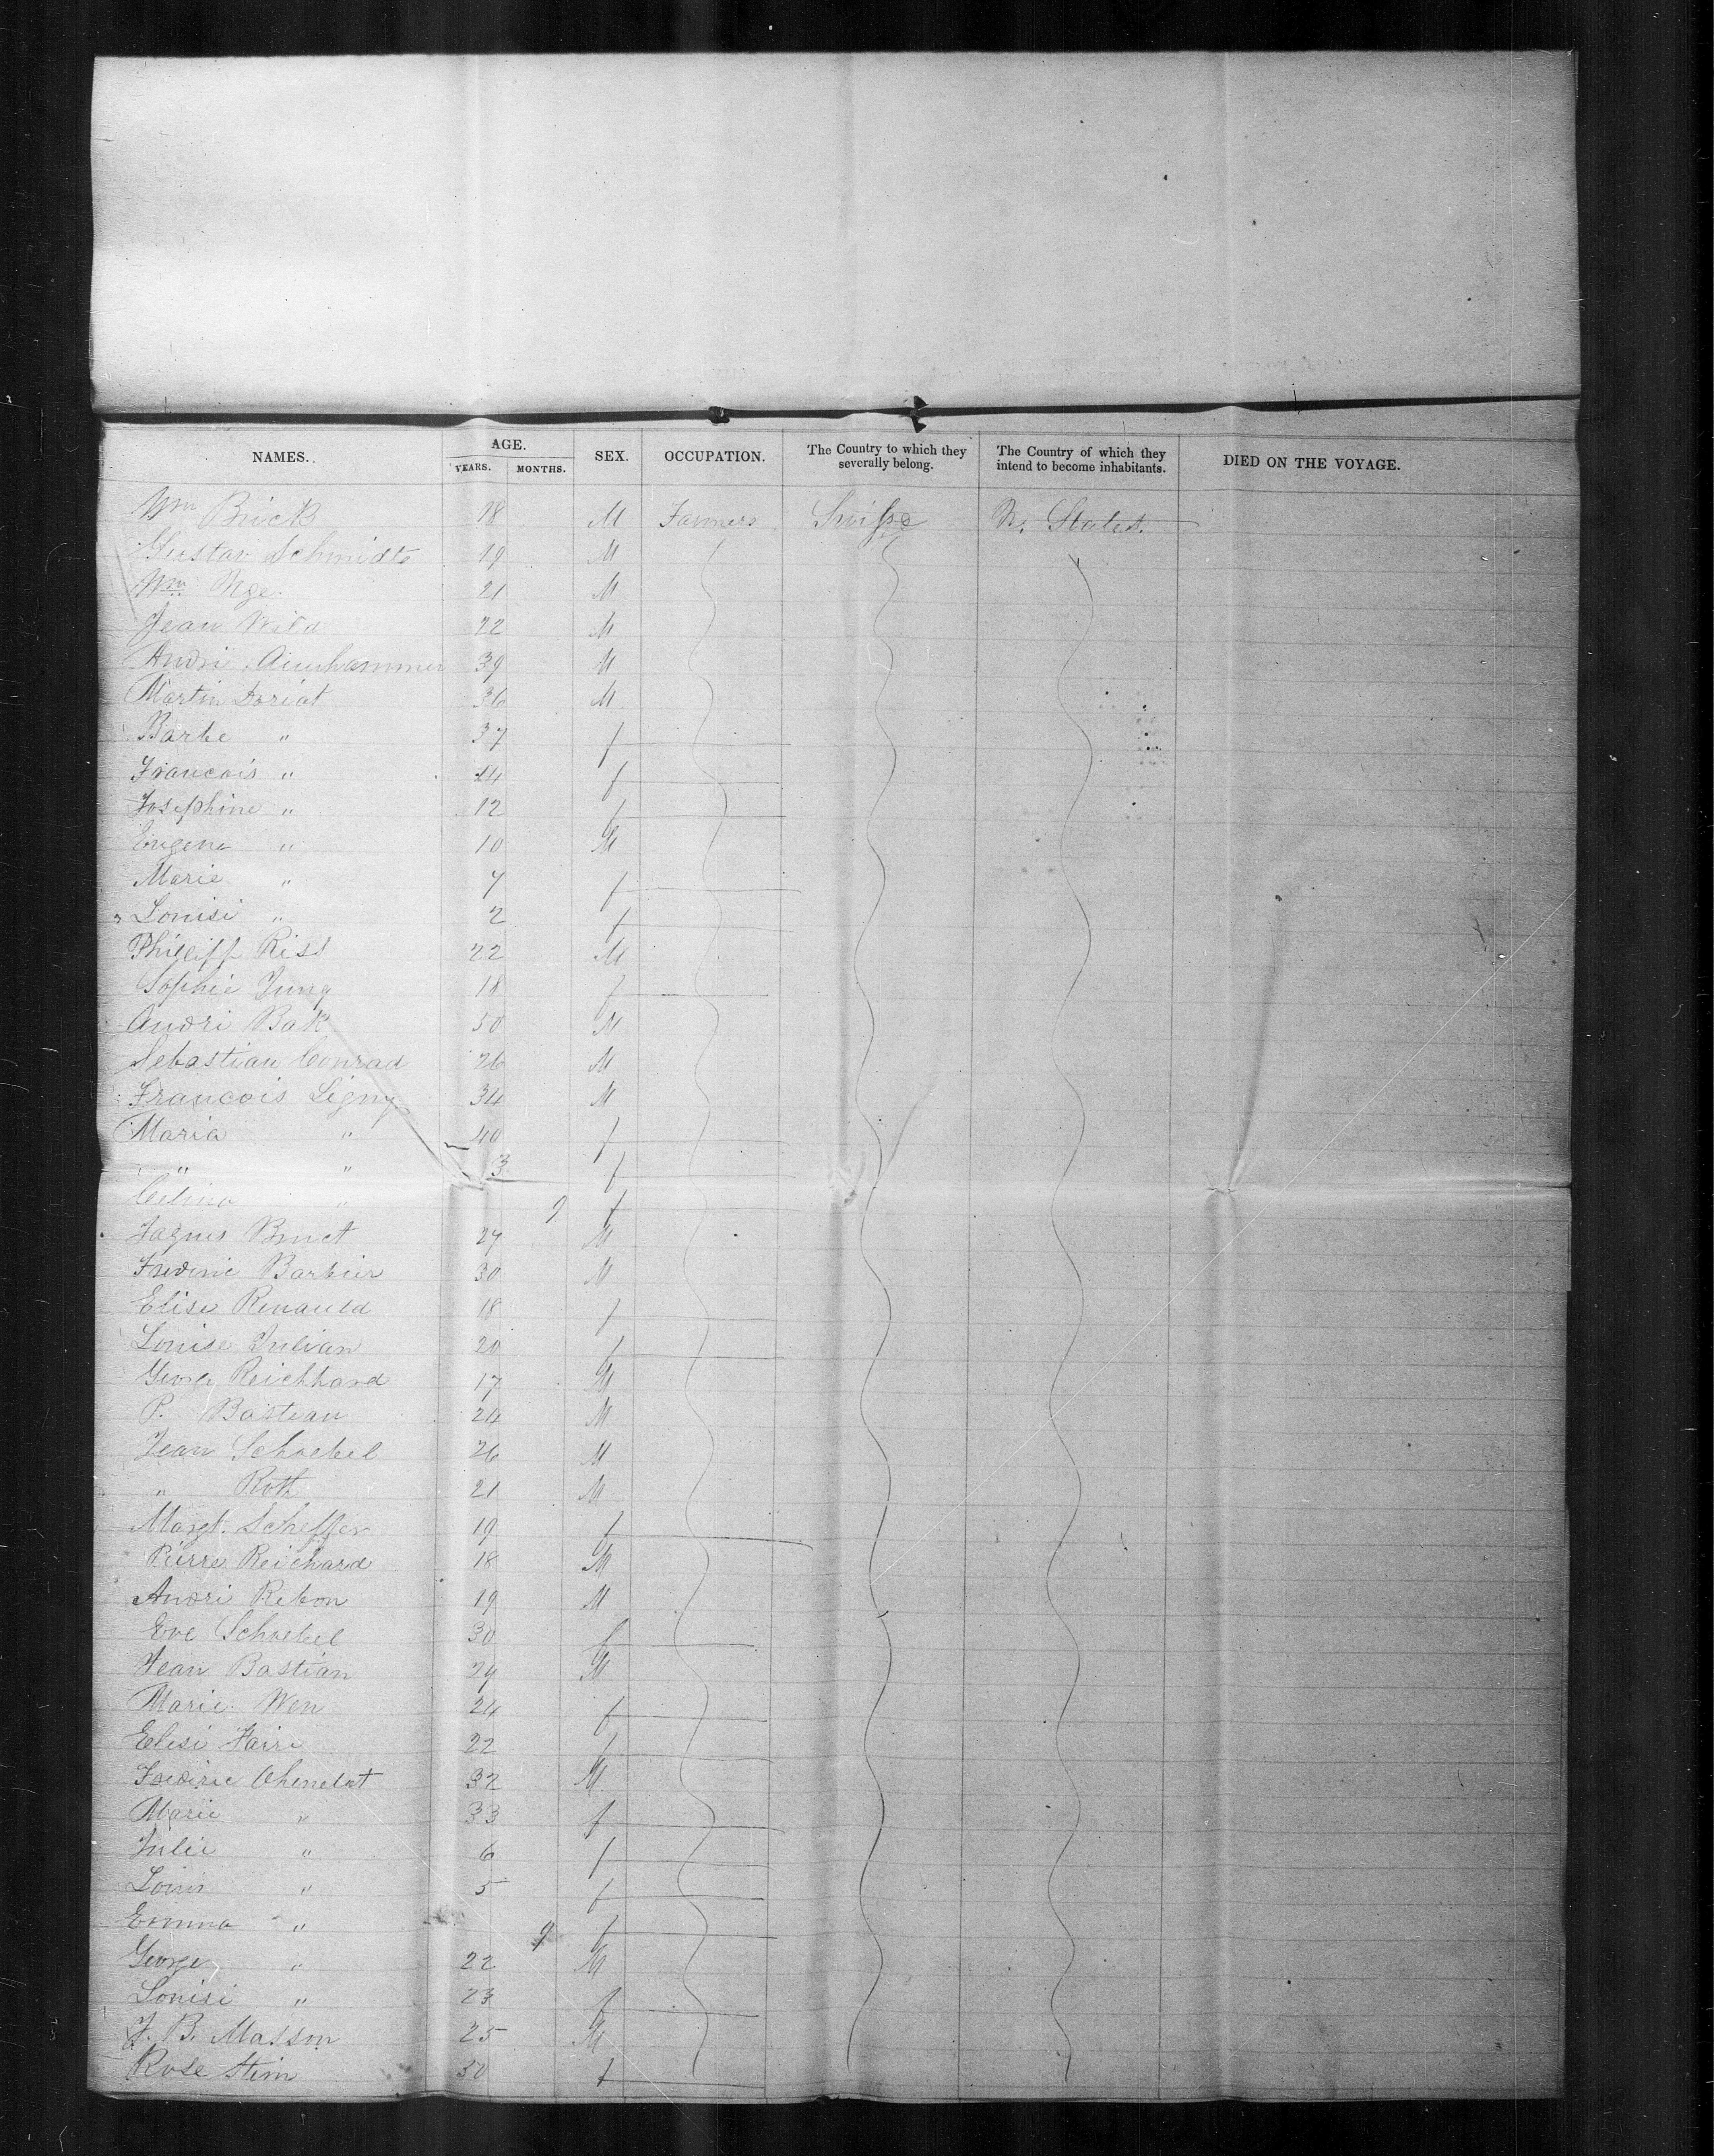 NAMES. AGE. SEX. OCCUPATION. The Country to which they severally belong. The Country of which they intend to become inhabitants. DIED ON THE VOYAGE.
YEARS. MONTHS.
Wm Brick 18 M Farmers Swisse U. States.
Gustav Schmidte 19 M
Wm Nge 21 M
Jean Wild 22 M
Andri 39 M
Martin Doriat 36 M
Barbe " 37 f
Francois " 14 f
Josephine " 12 f
Eugene " 10 M
Marie " 7 f
Louisi " 2 f
Philipp Rist 22 M
Sophie Jung 18 f
Andri Bak 30 M
Sebastian Conrad 26 M
Francois Ligny 34 M
Maria " 40 f
" " 3 f
Celina " 9 f
Jaques Bruet 27 M
Frederic Barbier 30 M
Elise Renauld 18 f
Louise Julian 20 f
George Reichhard 17 M
P. Bastian 24 M
Jean Schoebel 26 M
" Roth 21 M
Margt. Scheffer 19 f
Pierre Reichard 18 M
Andri Rebon 19 M
Eve Schoebel 30 f
Jean Bastian 29 M
Marie Wen 24 f
Elisi Fairi 22 f
Frederic Chenelot 32 M
Marie " 33 f
Julie " 6 f
Louis " 5 f
Emma " 9 f
George " 22 M
Louisi " 23 f
J. B. Masson 25 M
Rose Stim 30 f